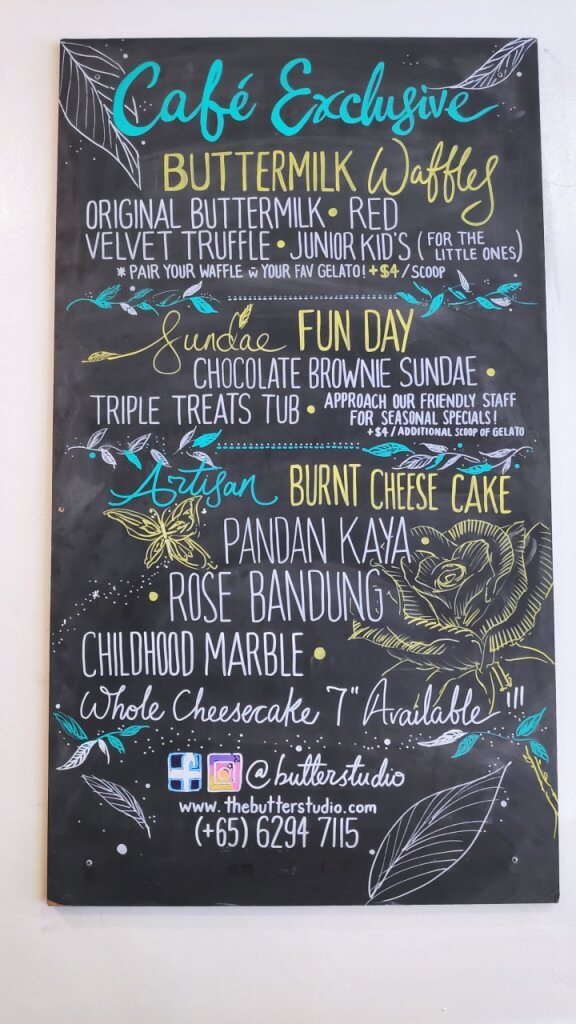 Café Exclusive
BUTTERMILK Waffles
ORIGINAL BUTTERMILK • RED
VELVET TRUFFLE • JUNIOR KID'S (FOR THE LITTLE ONES)
* PAIR YOUR WAFFLE w YOUR FAV GELATO! +$4/SCOOP
Sundae FUN DAY
CHOCOLATE BROWNIE SUNDAE •
TRIPLE TREATS TUB • APPROACH OUR FRIENDLY STAFF
FOR SEASONAL SPECIALS!
+$4/ADDITIONAL SCOOP OF GELATO
Artisan BURNT CHEESE CAKE
PANDAN KAYA •
• ROSE BANDUNG
CHILDHOOD MARBLE •
Whole Cheesecake 7" Available !!!
@butterstudio
www.thebutterstudio.com
(+65) 6294 7115